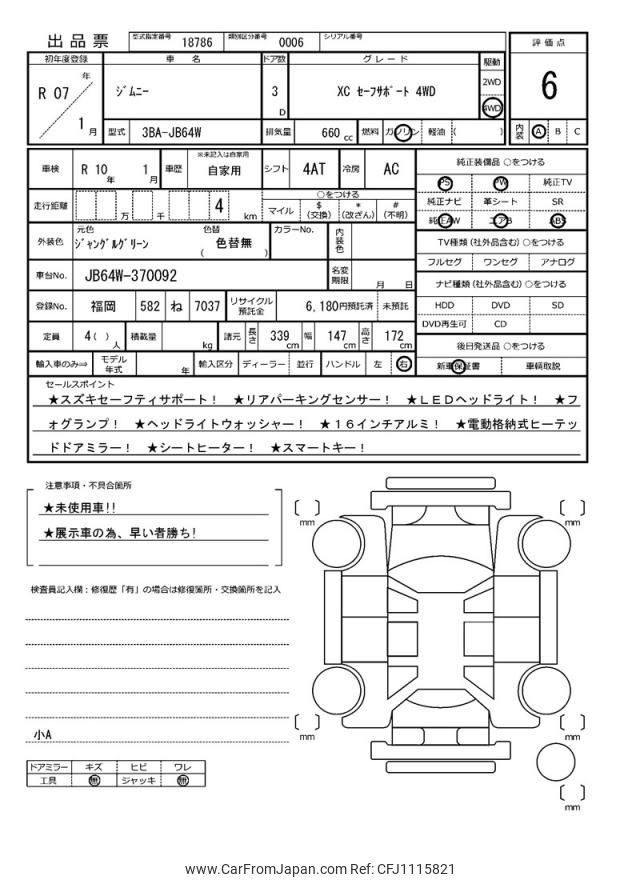 出品票 型式指定番号 18786 類別区分番号 0006 シリアル番号
評価点
6
内装 A B C
初年度登録 車名 ドア数 グレード 駆動
R 07 年 1 月
ジムニー 3 D XC セーフサポート 4WD 2WD 4WD
型式 3BA-JB64W 排気量 660 cc 燃料 ガソリン 軽油 ( )
車検 R 10 年 1 月 車歴 ※未記入は自家用 自家用 シフト 4AT 冷房 AC
走行距離 万 千 4 km ○をつける マイル $(交換) *(改ざん) #(不明)
外装色 元色 ジャングルグリーン 色替 ( 色替無 ) カラーNo. 内装色
車台No. JB64W-370092 名変期限 月 日
登録No. 福岡 582 ね 7037 リサイクル預託金 6,180円預託済 未預託
定員 4( ) 人 積載量 kg 諸元 長さ 339 cm 幅 147 cm 高さ 172 cm
輸入車のみ⇒ モデル年式 年 輸入区分 ディーラー 並行 ハンドル 左 右
純正装備品 ○をつける
PS PW 純正TV
純正ナビ 革シート SR
純正AW エアB ABS
TV種類(社外品含む)○をつける
フルセグ ワンセグ アナログ
ナビ種類(社外品含む)○をつける
HDD DVD SD
DVD再生可 CD
後日発送品 ○をつける
新車保証書 車輌取説
セールスポイント
★スズキセーフティサポート! ★リアパーキングセンサー! ★LEDヘッドライト! ★フ
ォグランプ! ★ヘッドライトウォッシャー! ★16インチアルミ! ★電動格納式ヒーテッ
ドドアミラー! ★シートヒーター! ★スマートキー!
注意事項・不具合箇所
★未使用車!!
★展示車の為、早い者勝ち!
検査員記入欄:修復歴「有」の場合は修復箇所・交換箇所を記入
小A
ドアミラー キズ ヒビ ワレ
工具 無 ジャッキ 無
mm
mm
mm
mm
mm
www.CarFromJapan.com Ref: CFJ1115821